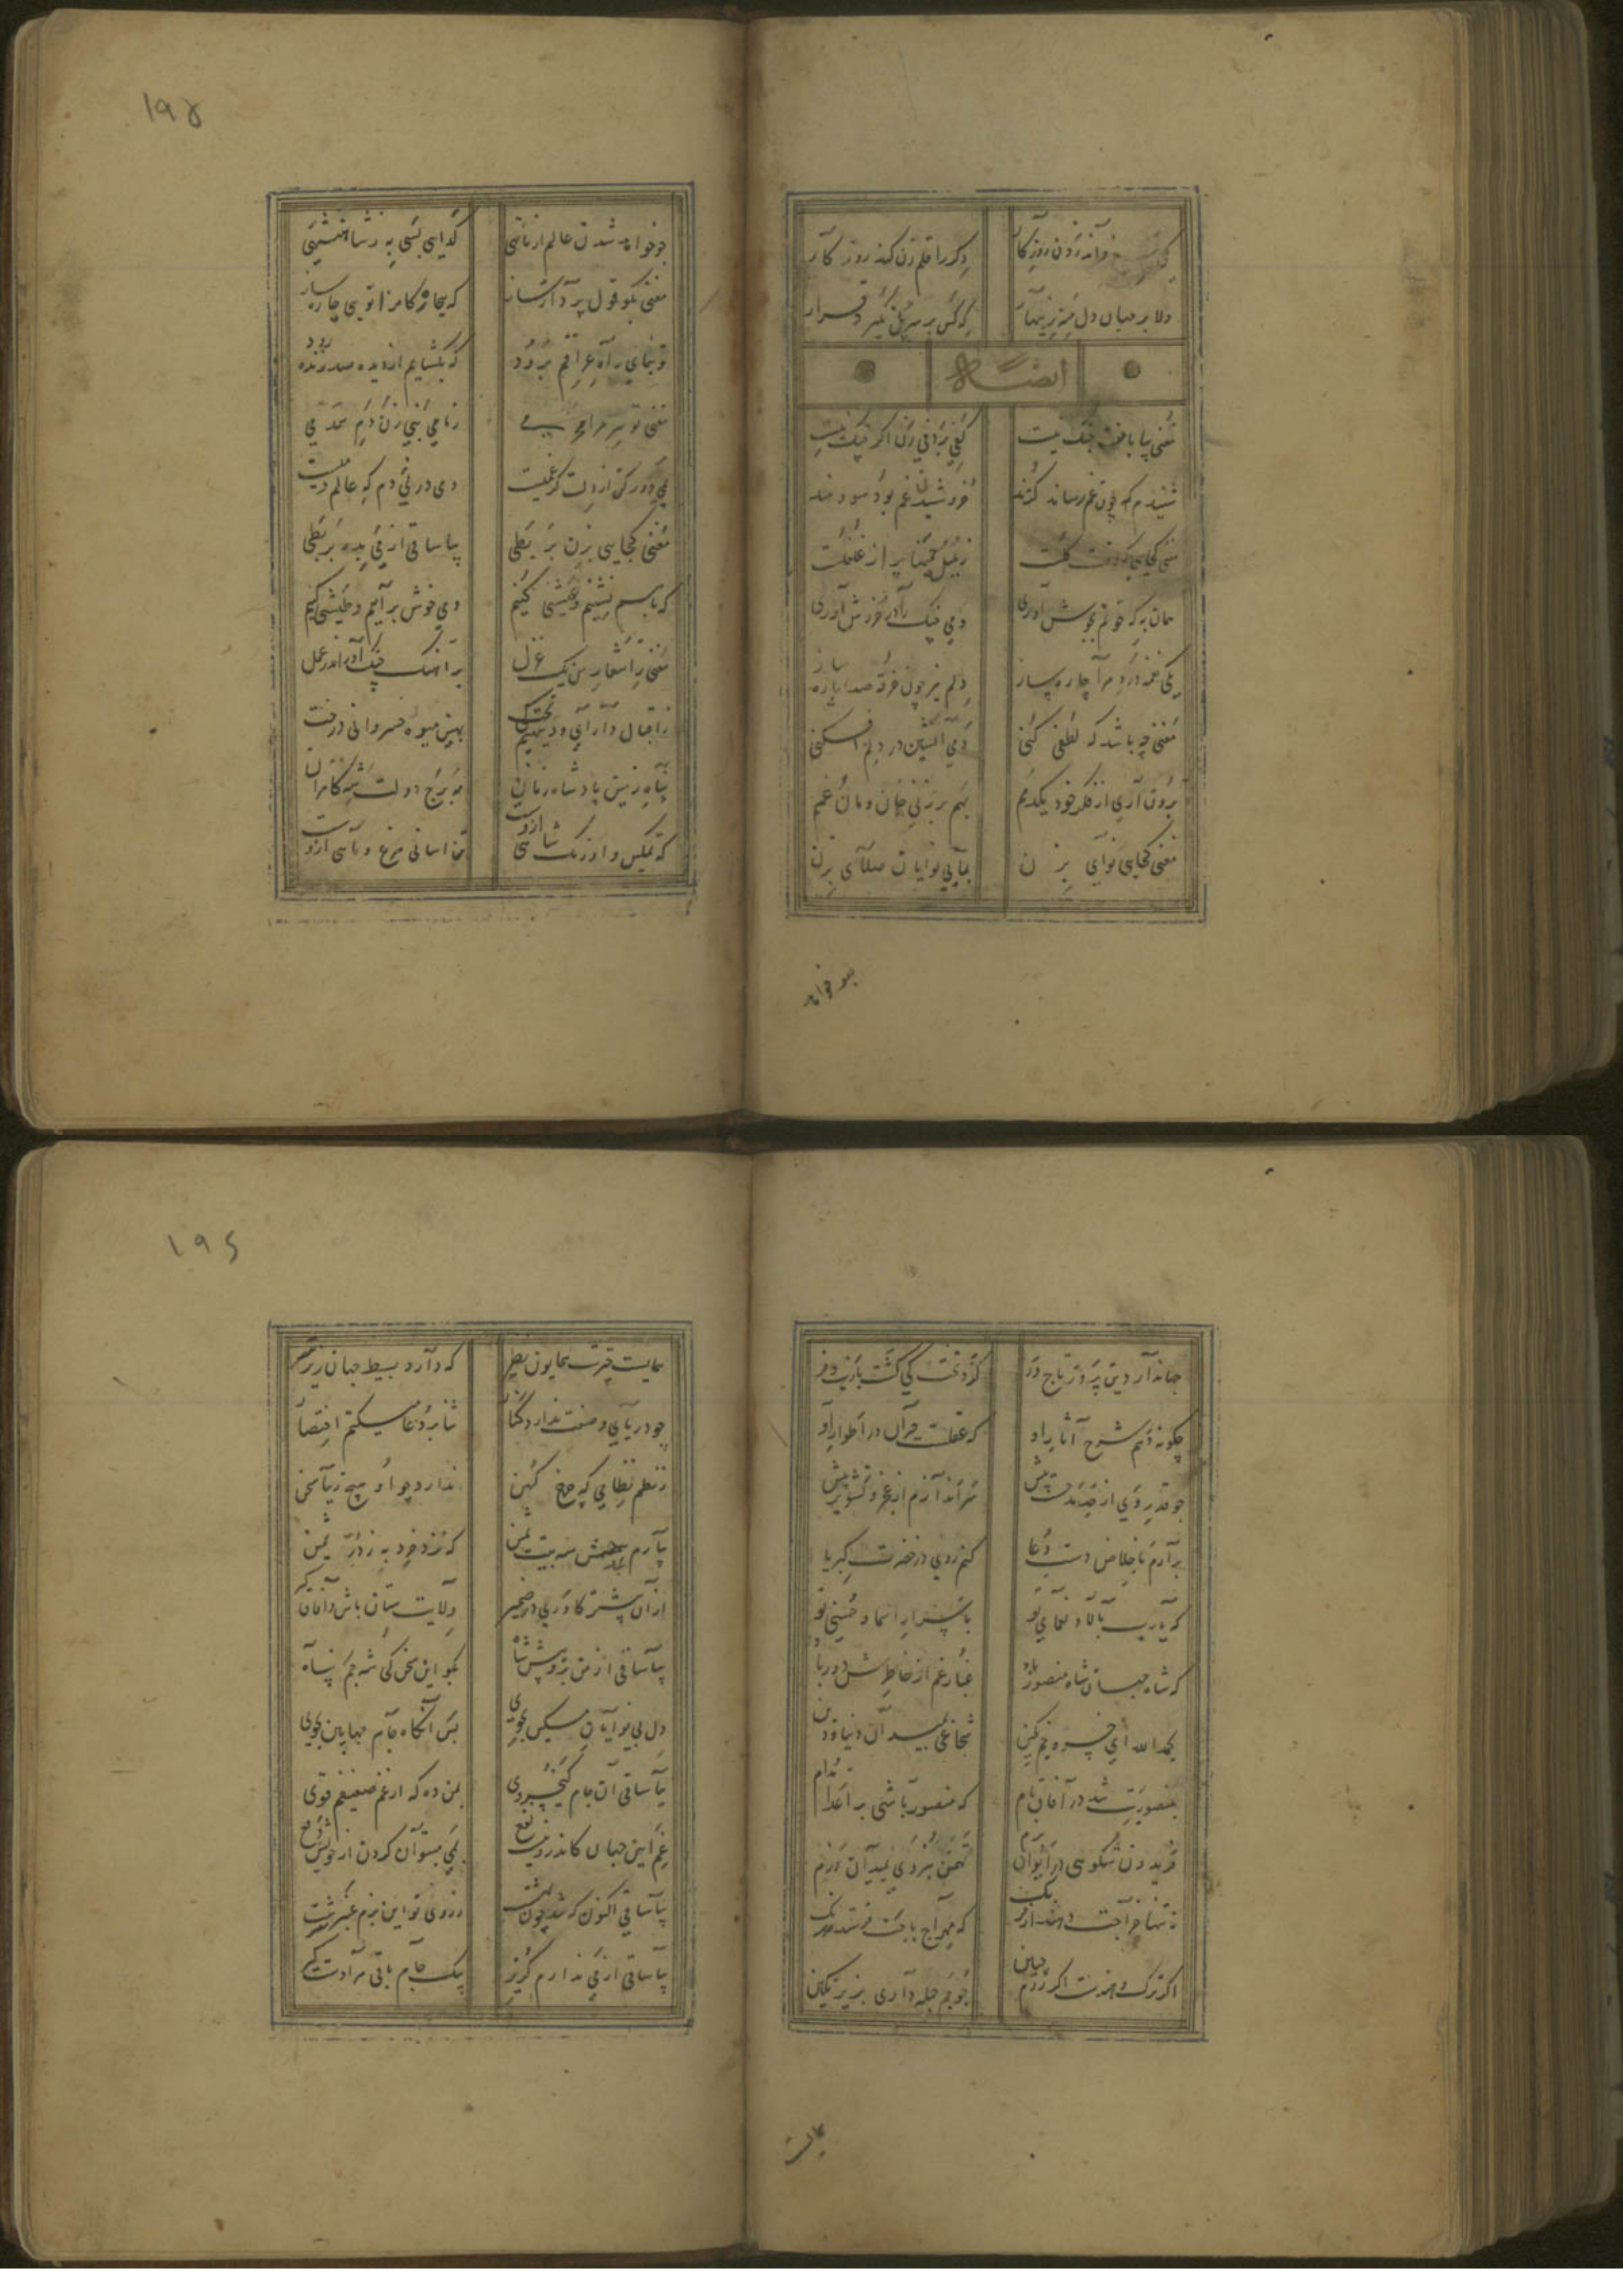 دکر را قلم زن کند روزکار
دلا بر جهان دل منه زینهار
که کس بر سر پل نکیرد قرار
ایضاً له
مغنی بیا با منت جنک نیست
کفی بر دفی زن اکر چنک نیست
شنیدم که چون غم رساند کزند
خروشیدن دف بود سودمند
مغنی کجایی که وقت کلست
ز بلبل چمنها پر از غلغلست
همان به که خونم بجوش آوری
دمی چنک را در خروش آوری
یکی نغمه
مرا چاره ساز
دلم نیز چون خرقه صد پاره ساز
مغنی چه باشد که لطفی کنی
ز نی آتشی در دلم افکنی
برون آری از فکر خود یکدمم
بهم بر زنی خان و مان غمم
مغنی کجایی نوایی بزن
به بی نوایان صلایی بزن
چو خواهد شدن
چو خواهد شدن عالم از ما تهی
کدایی بسی به ز شاهنشهی
مغنی بکو قول و پردار ساز
که بیچارکانرا تویی چاره ساز
تو بنمای راه عراقم برود
که بکشایم از دیده صد زنده رود
مغنی تو سر مرا محرمی
زمانی بنی زن دم همدمی
غمی دور کن از دلت کر غمیست
دمی در نی دم که عالم دمیست
مغنی کجایی بزن بربطی
بیا ساقی از می بده بربطی
که با هم نشینیم و عیشی کنیم
دمی خوش برآییم و طیشی کنیم
مغنی ز اشعار من یک غزل
بر آهنک چنک آور اندر عمل
ز اقبال دارای دیهیم و تخت
بهین میوه خسروانی درخت
پناه زمین پادشاه زمان
مه برج دولت شه کامران
که تمکین و اورنک شاهی ازوست
تن آسانی مرغ و ماهی ازوست
۱۹۵
جهاندار دین پرور تاج ور
کزو تخت کی کشت با زیب و فر
چکونه دهم شرح آثار او
که عقلست حیران در اطوار او
چو قدر وی از حد مدحت بیش
سر اندازم از عجز و تشویر پیش
برآرم باخلاص دست دعا
کنم روی در حضرت کبریا
که یا رب بآلاء و نعمای تو
باسرار اسماء حسنی تو
که شاه جهان شاه منصور باد
غبار غم از خاطرش دور باد
بحمد الله ای خسرو جم نکین
شجاعی بمیدان دنیا و دین
بمنصوریت شد در آفاق نام
که منصور باشی بر اعدا مدام
فریدون شکوهی در ایوان بزم
تهمتن نبردی بمیدان رزم
نه تنها خراجت دهند از فرنک
که مهراج باجت فرستد ز زنک
اکر ترک و هندست اکر روم و چین
چو جم جمله داری بزیر نکین
همایست
همایست چترت همایون نظیر
که دارد بسیط جهان زیر پر
چو دریای وصفت ندارد کنار
ثنا بر دعا میکنم اختصار
ز نظم نظامی که چرخ کهن
ندارد چو او هیچ زیبا سخن
بیارم بتضمین سه بیت متین
که نزد خرد به ز در ثمین
از آن بیشتر کاوری در ضمیر
ولایت ستان باش و آفاق کیر
بیا ساقی از من برو پیش شاه
بکو این سخن کی شه جم پناه
دل بی نوایان مسکین بجوی
پس آنکاه جام جهان بین بجوی
بیا ساقی آن جام کیخسروی
بمن ده که از غم ضعیفم قوی
غم این جهان کاندرو نیست نفع
بمی میتوان کردن از خویش دفع
بیا ساقی اکنون که شد چون بهشت
ز روی تو این بزم عنبر سرشت
بیا ساقی از می ندارم کریز
بیک جام باقی مرا دست کیر
۱۹۶